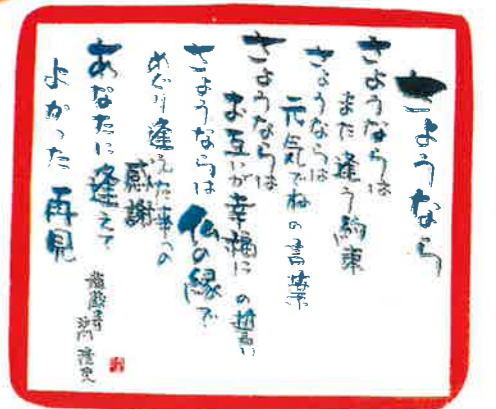 さようなら
さようならは
また逢う約束
さようならは
元気でねの言葉
さようならは
お互いが幸福にの誓い
さようならは仏の縁で
めぐり逢えた事への
感謝
あなたに逢えて
よかった 再見
龍蔵寺